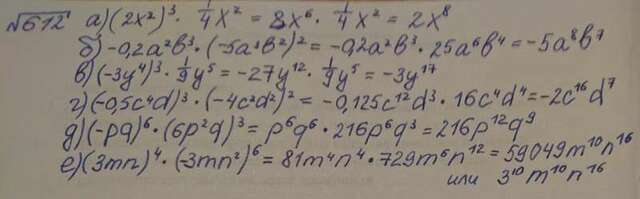 √612 а) (2x²)³ · 1/4 x² = 8x⁶ · 1/4 x² = 2x⁸
б) -0,2a²b³ · (-5a³b²)² = -0,2a²b³ · 25a⁶b⁴ = -5a⁸b⁷
в) (-3y⁴)³ · 1/9 y⁵ = -27y¹² · 1/9 y⁵ = -3y¹⁷
г) (-0,5c⁴d)³ · (-4c²d²)² = -0,125c¹²d³ · 16c⁴d⁴ = -2c¹⁶d⁷
д) (-pq)⁶ · (6p²q)³ = p⁶q⁶ · 216p⁶q³ = 216p¹²q⁹
е) (3mn)⁴ · (-3mn²)⁶ = 81m⁴n⁴ · 729m⁶n¹² = 59049m¹⁰n¹⁶
или 3¹⁰m¹⁰n¹⁶